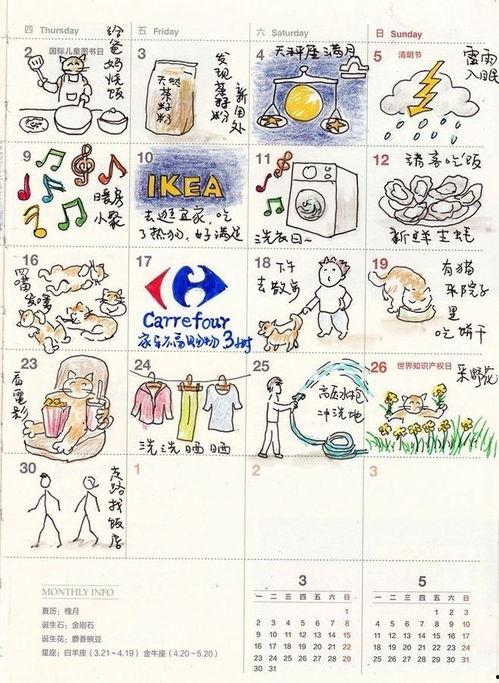 四 Thursday
五 Friday
六 Saturday
日 Sunday
2 国际儿童图书日
给爸妈烧饭
3
天然茶籽粉
发现茶籽粉
新用处
4
天秤座满月
5 清明节
雷雨
入眠
9
暖房
小聚
10
IKEA
去逛宜家,吃
了热狗,好满足
11
洗衣日~
12
请客吃饭
新鲜生蚝
16
四喵
17
Carrefour
家乐福购物3小时
18
下午
去散步
19
有猫
来院子
里
吃饼干
23
看電影
24
洗洗晒晒
25
高压水枪
冲洗地
26 世界知识产权日
采野花
30
走路找饭店
1
2
3
MONTHLY INFO
夏历:槐月
诞生石:金刚石
诞生花:麝香豌豆
星座:白羊座(3.21~4.19) 金牛座(4.20~5.20)
3
一 二 三 四 五 六 日
1
2 3 4 5 6 7 8
9 10 11 12 13 14 15
16 17 18 19 20 21 22
23 24 25 26 27 28 29
30 31
5
一 二 三 四 五 六 日
1 2 3
4 5 6 7 8 9 10
11 12 13 14 15 16 17
18 19 20 21 22 23 24
25 26 27 28 29 30 31